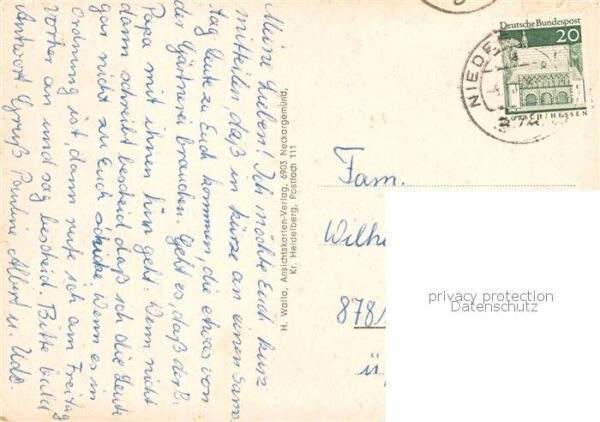 Meine Lieben! Ich möchte Euch kurz
mitteilen daß in kürze an einen Sams
tag Leute zu Euch kommen, die etwas von
der Gärtnerei brauchen. Geht es daß der
Papa mit ihnen hin geht. Wenn nicht
dann schreibt bescheid daß ich die Leute
gar nicht zu Euch schicke. Wenn es in
Ordnung ist, dann rufe ich am Freitag
vorher an und sag bescheid. Bitte bald
Antwort. Gruß Pauline Albert u. Udo.
H. Walla, Ansichtskarten-Verlag, 6903 Neckargemünd,
Kr. Heidelberg, Postfach 111
Deutsche Bundespost
20
LORSCH/HESSEN
NIEDE
Fam.
Wilhe
878/
ü
privacy protection
Datenschutz